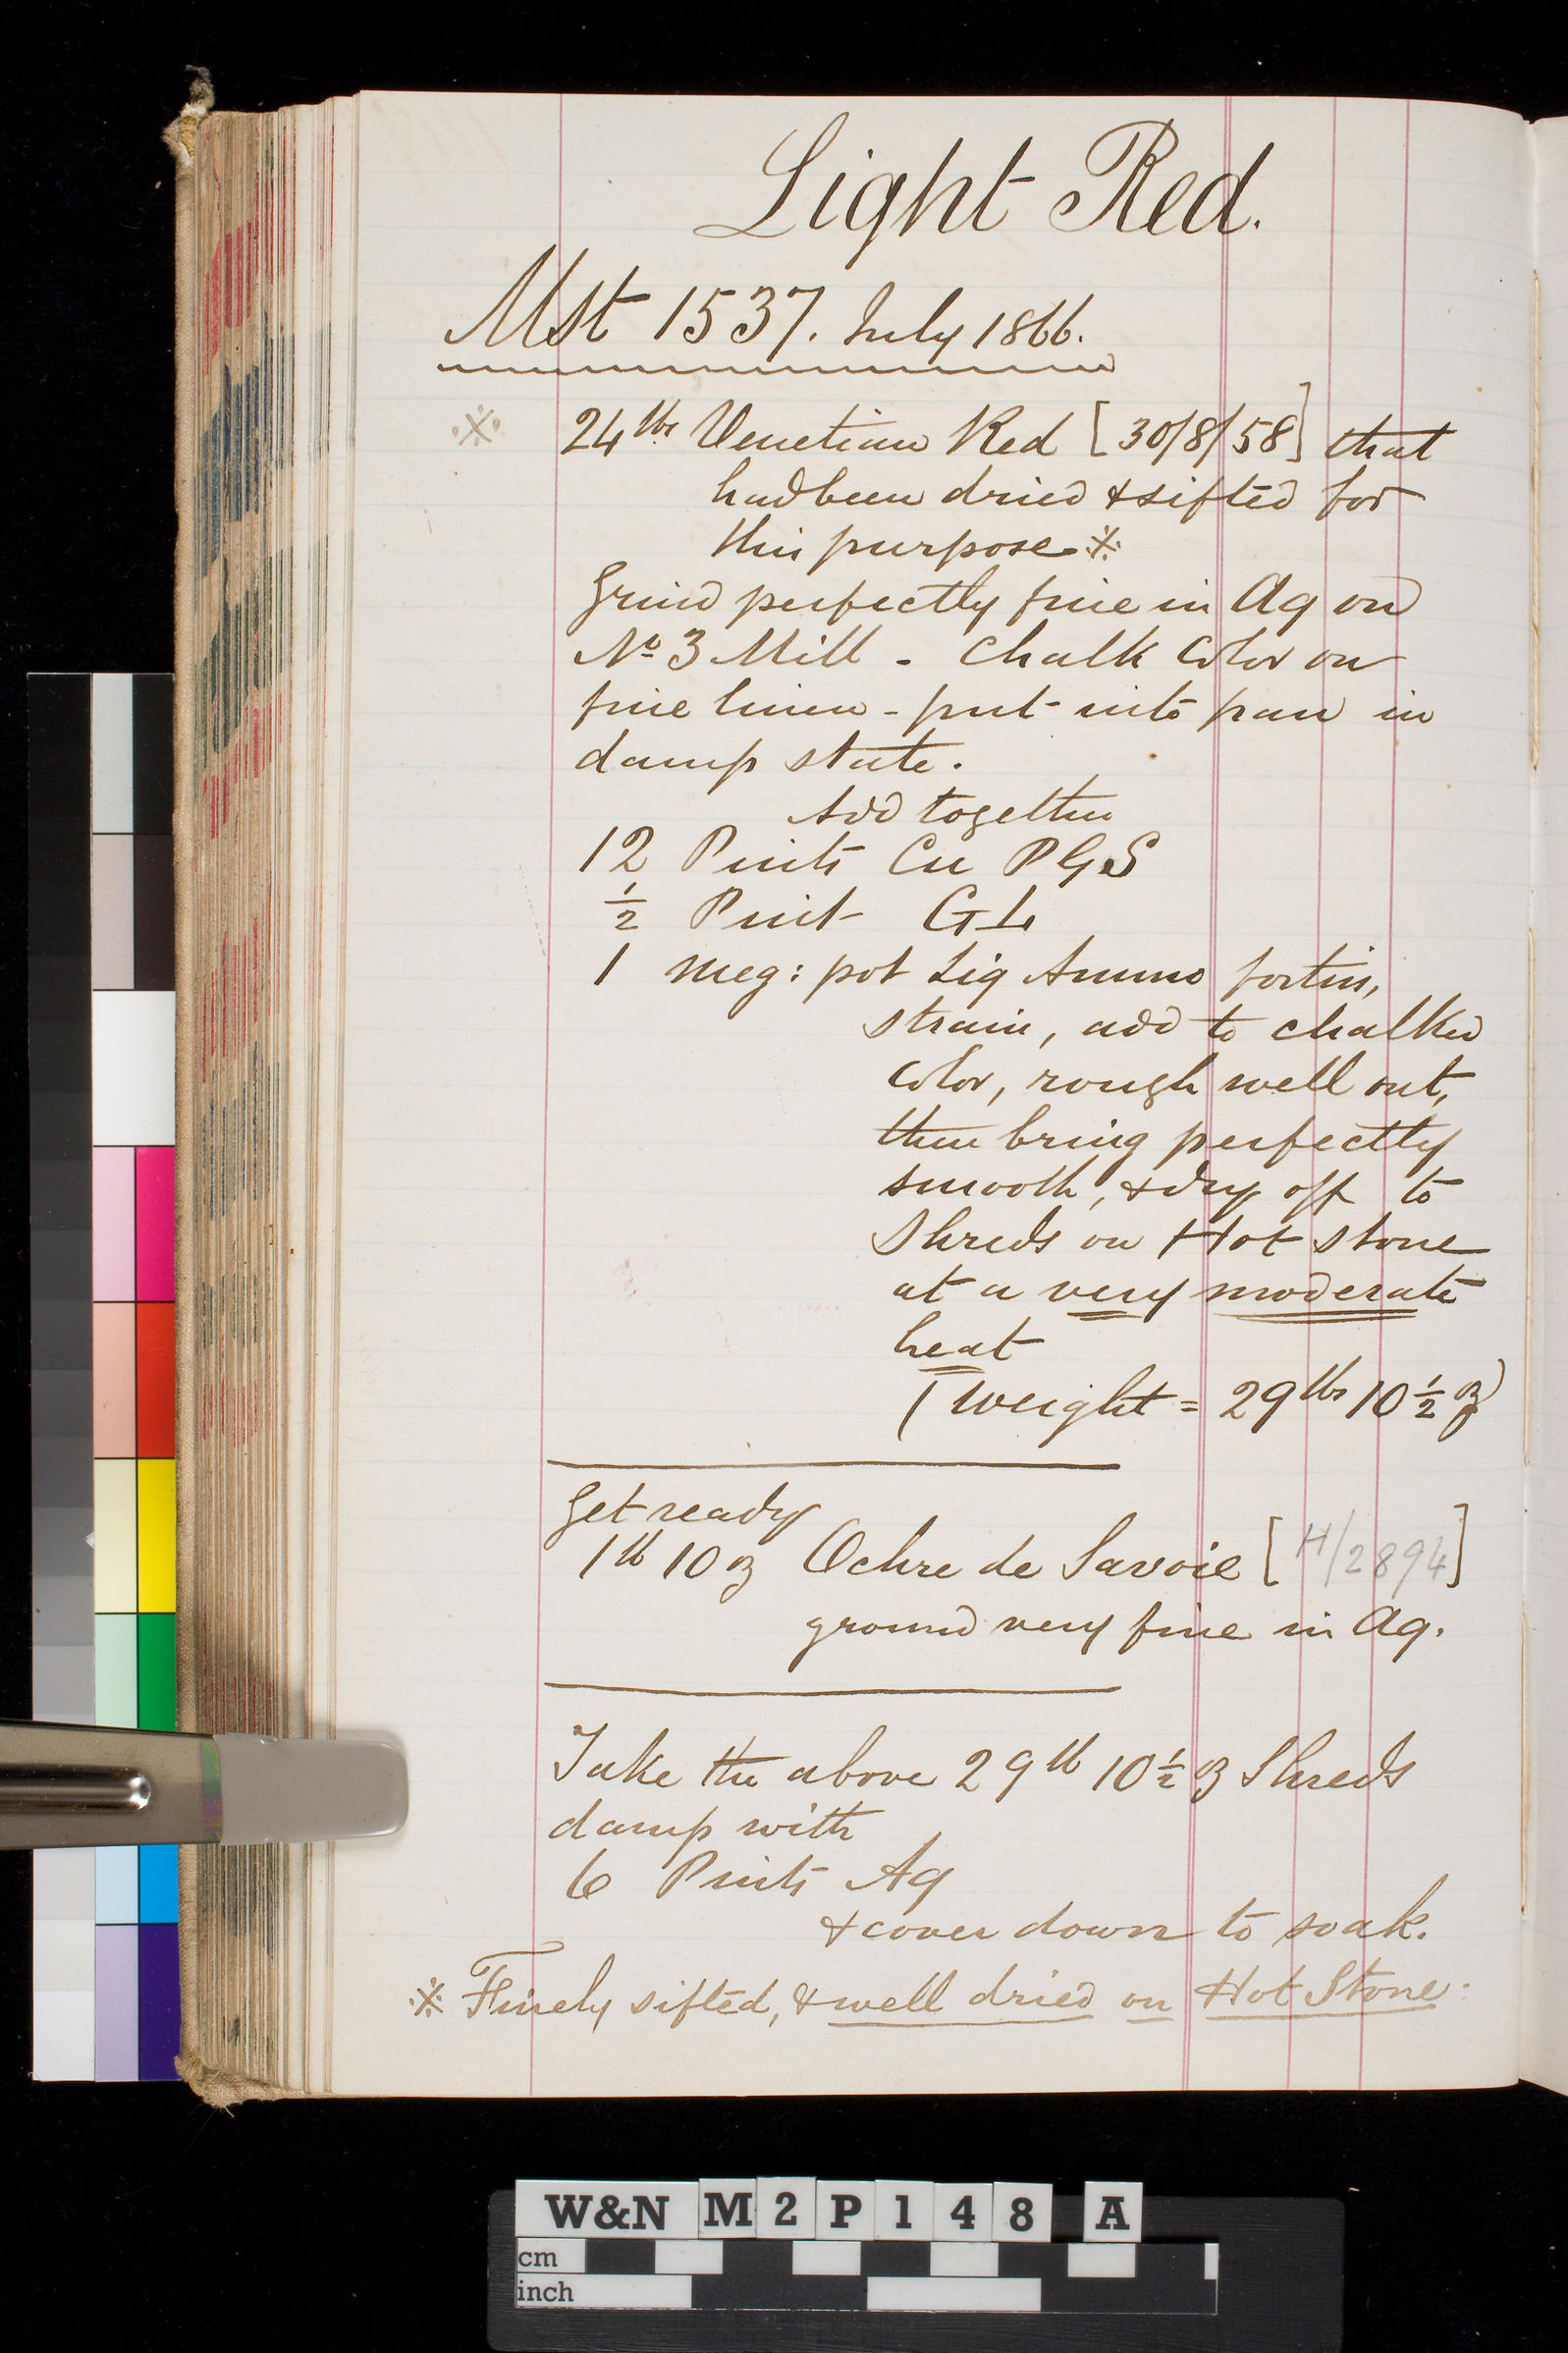 Light Red.
Mst 1537. July 1866.
※ 24 lbs Venetian Red [30/8/58] that
had been dried & sifted for
this purpose ※
Grind perfectly fine in Aq on
No 3 Mill - Chalk Color on
fine linen - put into pan in
damp state.
Add together
12 Pints Cu P G S
½ Pint G L
1 meg: pot Liq Ammo fortis,
strain, add to chalked
Color, rough well out,
then bring perfectly
smooth, & dry off to
Shreds on Hot Stone
at a very moderate
heat
(Weight = 29 lbs 10 ½ oz)
Get ready
1 lb 10 oz Ochre de Savoie [H/2894]
ground very fine in Aq.
Take the above 29 lb 10 ½ oz Shreds
damp with
6 Pints Aq
& cover down to soak.
※ Finely sifted, & well dried on Hot Stone.
W&N M2P148 A
cm
inch